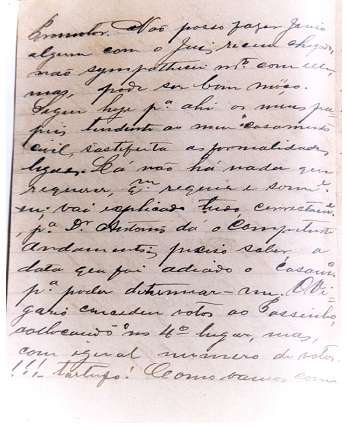 Não posso fazer juizo
algum com o Juiz recem chegado,
não sympathisei m.to com elle,
mas, pode ser bom môço.
Segui hoje p.a ahi os meus pa-
peis tendente ao meu "casamento
civil, satisfeita as formalidades
legaes. Cá não há nada que
requerer, q.m requeie e som.te
eu; vai explicado tudo correctam.te,
p.a Dr Antonio dá o competente
andamento; preciso saber a
data que foi adiado o casam.to
p.a poder determinar-me. O Vi-
gario concedeu votos ao Passinho,
collocando-o no 4º lugar, mas,
com igual numero de votos.
!!!- tartufo! Como vamos com a